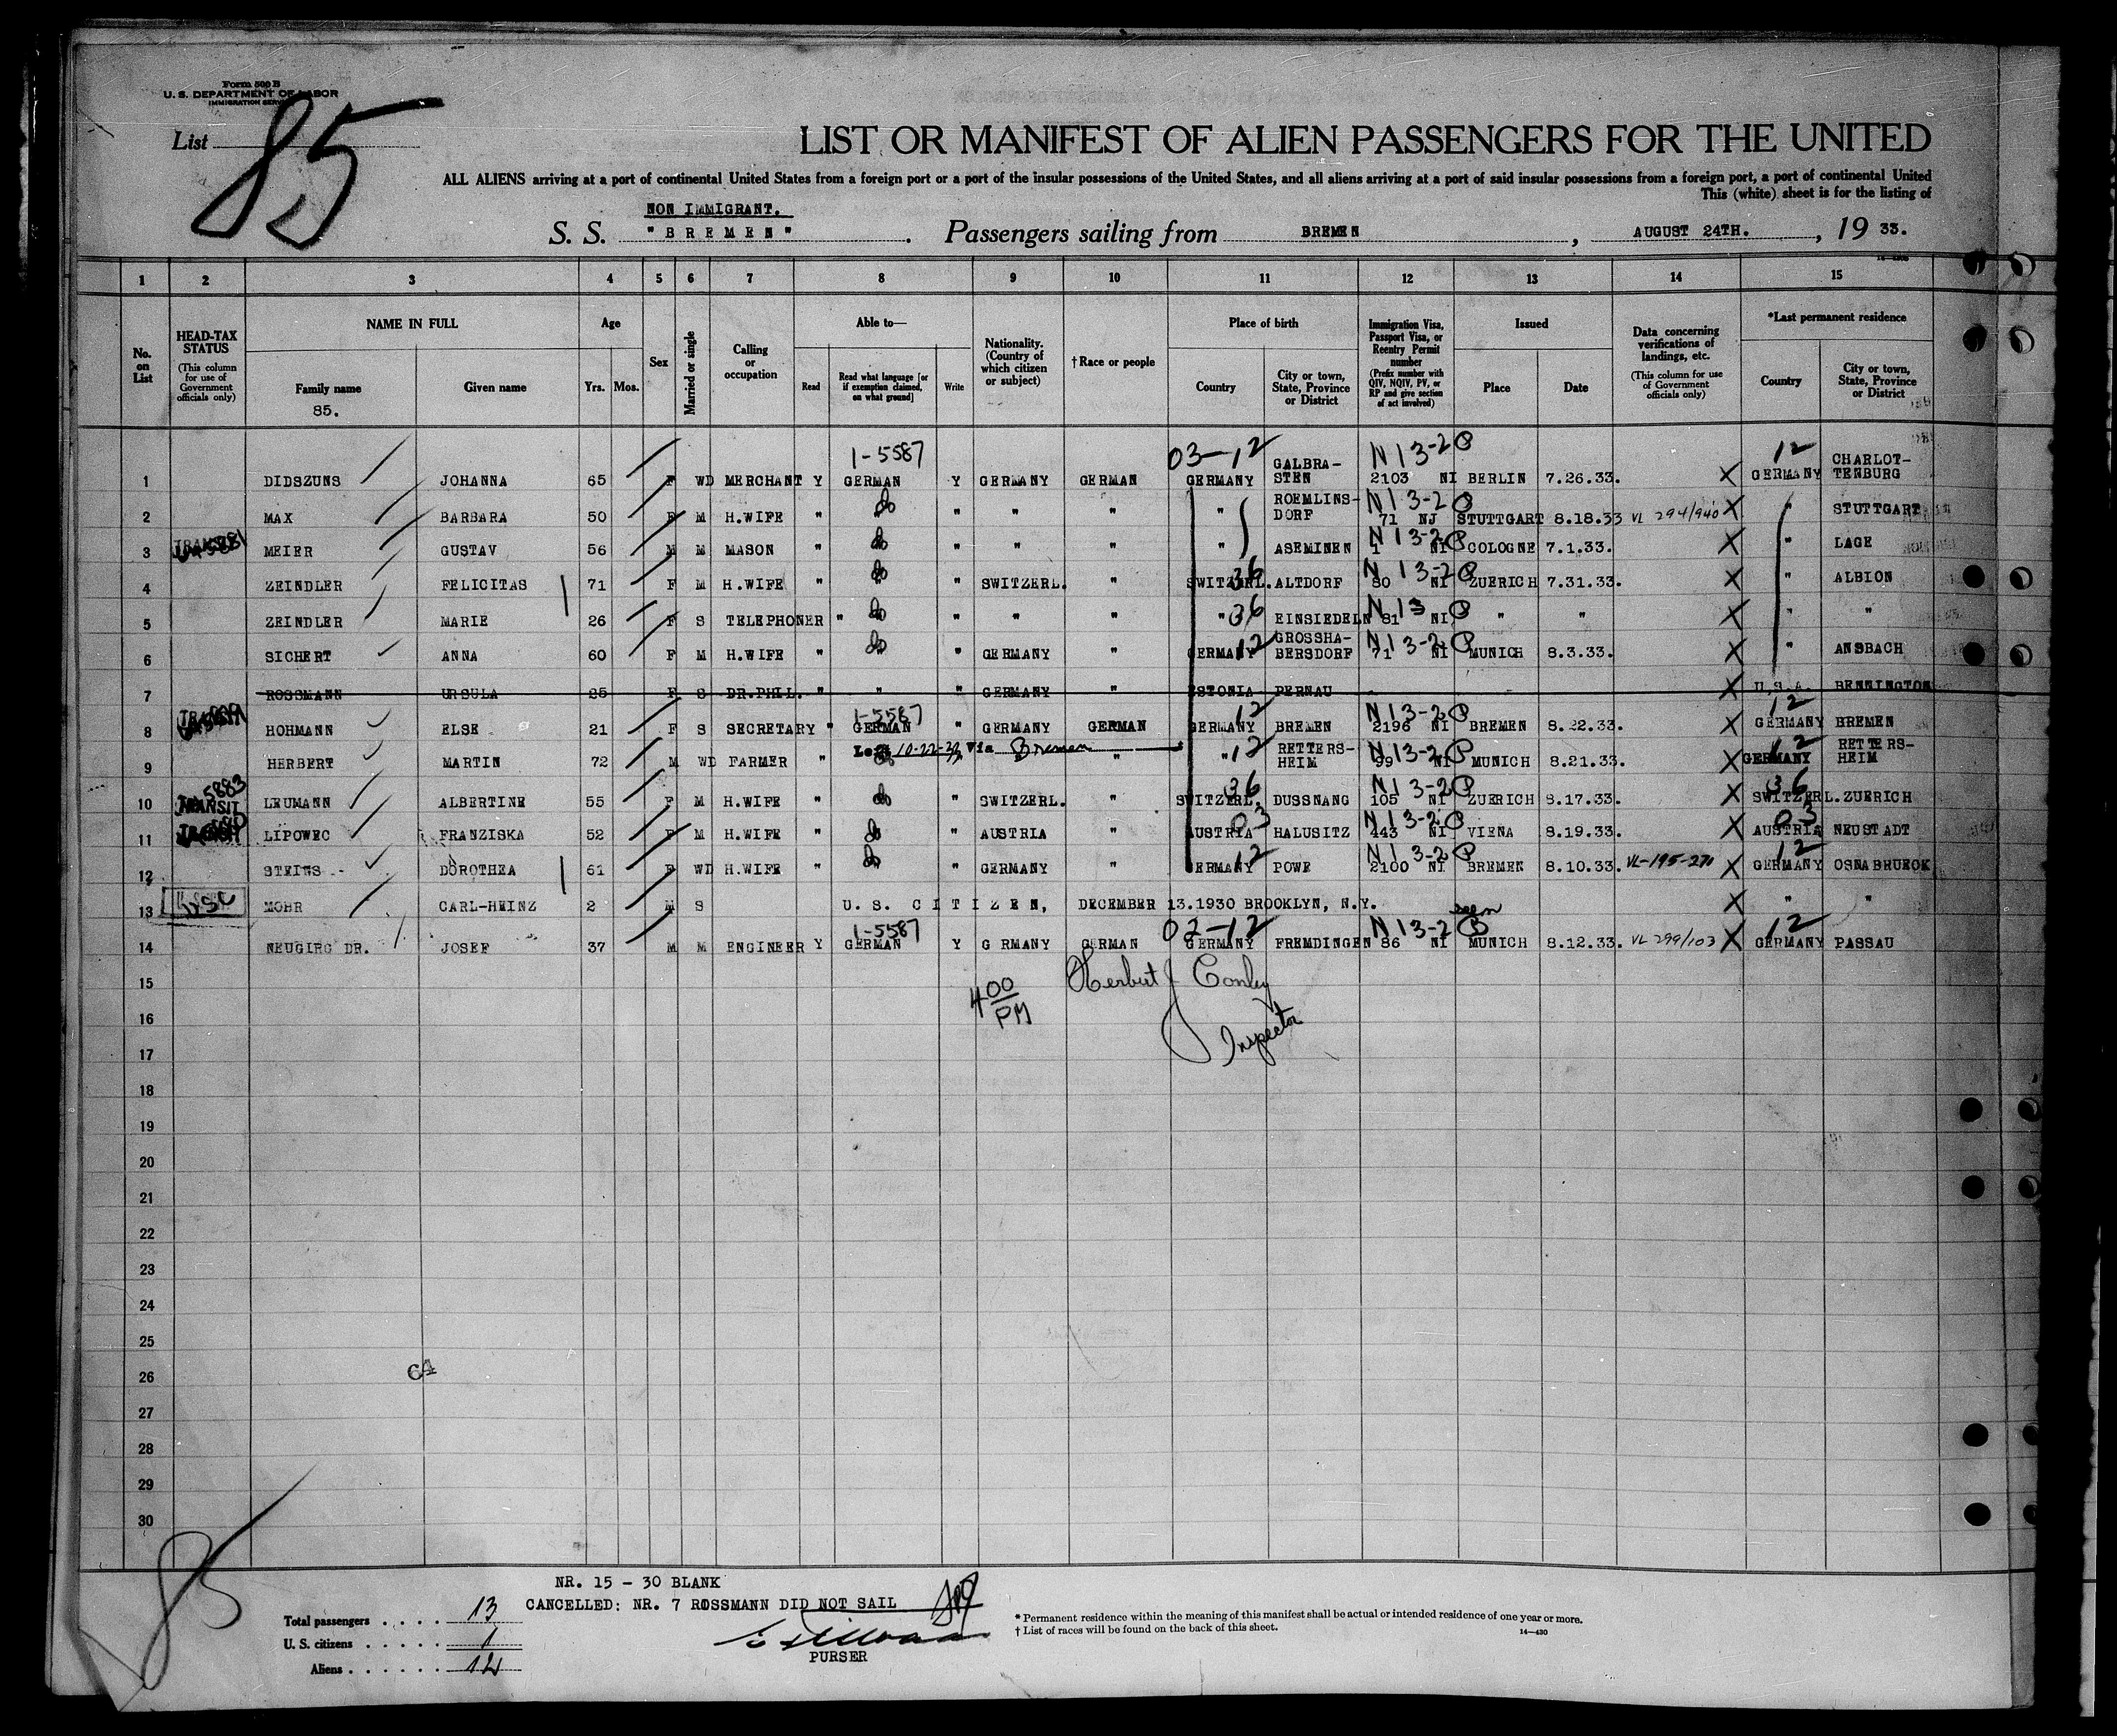 Form 500 B
U. S. DEPARTMENT OF LABOR
IMMIGRATION SERVICE
List 85
LIST OR MANIFEST OF ALIEN PASSENGERS FOR THE UNITED
ALL ALIENS arriving at a port of continental United States from a foreign port or a port of the insular possessions of the United States, and all aliens arriving at a port of said insular possessions from a foreign port, a port of continental United
This (white) sheet is for the listing of
NON IMMIGRANT.
S. S. "BREMEN". Passengers sailing from BREMEN, AUGUST 24TH., 19 33.
1 2 3 4 5 6 7 8 9 10 11 12 13 14 15
No. on List
HEAD-TAX STATUS (This column for use of Government officials only)
NAME IN FULL
Family name
85.
Given name
Age
Yrs. Mos.
Sex
Married or single
Calling or occupation
Able to—
Read
Read what language [or if exemption claimed, on what ground]
Write
Nationality. (Country of which citizen or subject)
† Race or people
Place of birth
Country
City or town, State, Province or District
Immigration Visa, Passport Visa, or Reentry Permit number (Prefix number with QIV, NQIV, PV, or RP and give section of act involved)
Issued
Place
Date
Data concerning verifications of landings, etc. (This column for use of Government officials only)
*Last permanent residence
Country
City or town, State, Province or District
1-5587 03-12 N 13-2 12
1 DIDSZUNS JOHANNA 65 F WD MERCHANT Y GERMAN Y GERMANY GERMAN GERMANY GALBRA-STEN 2103 NI BERLIN 7.26.33. X GERMANY CHARLOT-TENBURG
2 MAX BARBARA 50 F M H.WIFE " " " " " ROEMLINS-DORF N13-2 71 NJ STUTTGART 8.18.33 VL 294/940 X " STUTTGART
3 MEIER GUSTAV 56 M M MASON " " " " " ASEMINEN N13-2 1 NI COLOGNE 7.1.33. X " LAGE
4 ZEINDLER FELICITAS 71 F M H.WIFE " " SWITZERL. " SWITZERL. 36 ALTDORF N 13-2 80 NI ZUERICH 7.31.33. X " ALBION
5 ZEINDLER MARIE 26 F S TELEPHONER " " " " " 36 EINSIEDELN N13 81 NI " " X " "
6 SICHERT ANNA 60 F M H.WIFE " " " GERMANY " GERMANY 12 GROSSHA-BERSDORF N13-2 71 NI MUNICH 8.3.33. X " ANSBACH
7 ROSSMANN URSULA 25 F S DR.PHIL. " " " GERMANY ESTONIA PERNAU X U.S.A. BENNINGTON
8 TRANSIT HOHMANN ELSE 21 F S SECRETARY " 1-5587 GERMAN " GERMANY GERMAN GERMANY 12 BREMEN N13-2 2196 NI BREMEN 8.22.33. X 12 GERMANY BREMEN
Left 10-22-33 Via Bremen
9 HERBERT MARTIN 72 M WD FARMER " " " 12 RETTERS-HEIM N13-2 99 NI MUNICH 8.21.33. X 12 GERMANY RETTERS-HEIM
10 TRANSIT LEUMANN ALBERTINE 55 F M H.WIFE " " SWITZERL. " SWITZERL. 36 DUSSNANG N13-2 105 NI ZUERICH 8.17.33. X 36 SWITZERL. ZUERICH
11 LIPOWEC FRANZISKA 52 F M H.WIFE " " AUSTRIA " AUSTRIA 03 HALUSITZ N13-2 443 NI VIENA 8.19.33. X 03 AUSTRIA NEUSTADT
12 STEINS DOROTHEA 61 F WD H.WIFE " " GERMANY " GERMANY 12 POWE N13-2 2100 NI BREMEN 8.10.33. VL-195-270 X 12 GERMANY OSNABRUECK
13 USC MOHR CARL-HEINZ 2 M S U. S. CITIZEN, DECEMBER 13.1930 BROOKLYN, N.Y. X " "
1-5587 02-12 N13-2 seen 12
14 NEUGIRG DR. JOSEF 37 M M ENGINEER Y GERMAN Y G RMANY GERMAN GERMANY FREMDINGEN 86 NI MUNICH 8.12.33. VL 299/103 X GERMANY PASSAU
15
4 00 PM Herbert J Conley
16
Inspector
17
18
19
20
21
22
23
24
25
26
27
28
29
30
85
NR. 15 - 30 BLANK
CANCELLED: NR. 7 ROSSMANN DID NOT SAIL
PURSER
Total passengers 13
U. S. citizens 1
Aliens 12
* Permanent residence within the meaning of this manifest shall be actual or intended residence of one year or more.
† List of races will be found on the back of this sheet.
14—430